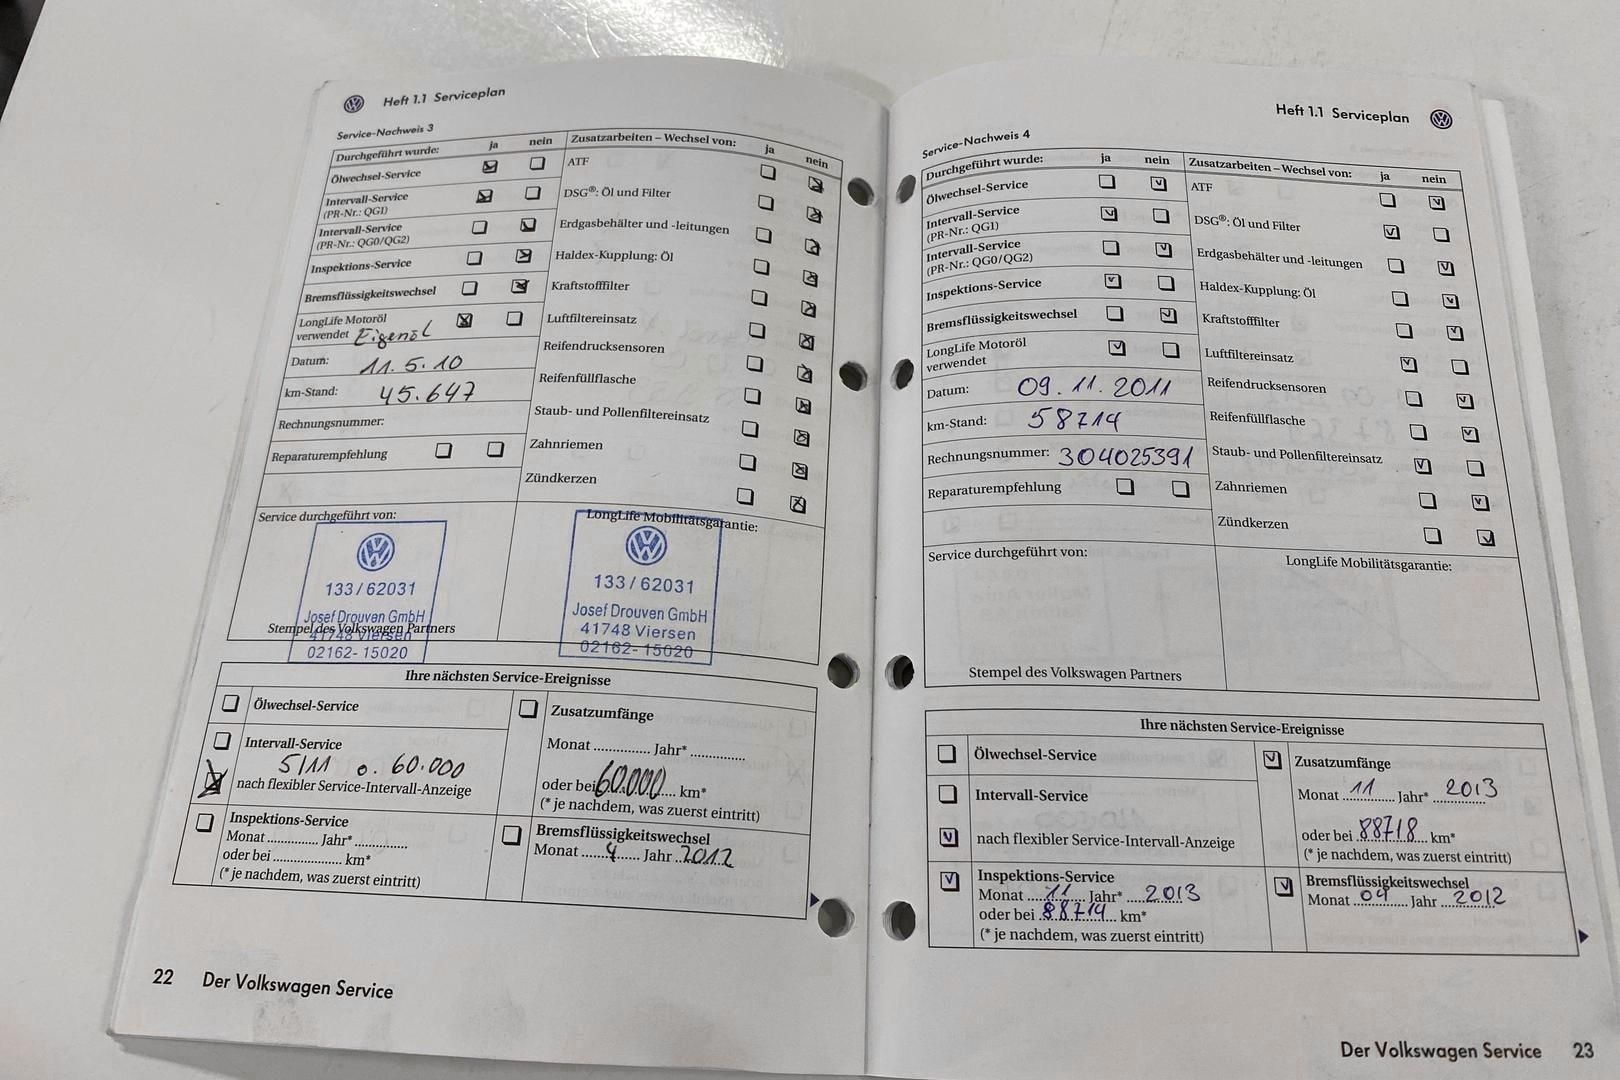 Heft 1.1 Serviceplan
Service-Nachweis 3
Durchgeführt wurde: ja nein
Ölwechsel-Service
Intervall-Service
(PR-Nr.: QG1)
Intervall-Service
(PR-Nr.: QG0/QG2)
Inspektions-Service
Bremsflüssigkeitswechsel
LongLife Motoröl
verwendet Eigenöl
Datum: 11.5.10
km-Stand: 45.647
Rechnungsnummer:
Reparaturempfehlung
Zusatzarbeiten – Wechsel von: ja nein
ATF
DSG®: Öl und Filter
Erdgasbehälter und -leitungen
Haldex-Kupplung: Öl
Kraftstofffilter
Luftfiltereinsatz
Reifendrucksensoren
Reifenfüllflasche
Staub- und Pollenfiltereinsatz
Zahnriemen
Zündkerzen
Service durchgeführt von:
133/62031
Josef Drouven GmbH
41748 Viersen
02162-15020
Stempel des Volkswagen Partners
LongLife Mobilitätsgarantie:
133/62031
Josef Drouven GmbH
41748 Viersen
02162-15020
Ihre nächsten Service-Ereignisse
Ölwechsel-Service
Intervall-Service
5/11 o. 60.000
nach flexibler Service-Intervall-Anzeige
Inspektions-Service
Monat .............. Jahr* ..............
oder bei .................... km*
(* je nachdem, was zuerst eintritt)
Zusatzumfänge
Monat .............. Jahr* ..............
oder bei 60.000 km*
(* je nachdem, was zuerst eintritt)
Bremsflüssigkeitswechsel
Monat 4 Jahr 2012
22 Der Volkswagen Service
Heft 1.1 Serviceplan
Service-Nachweis 4
Durchgeführt wurde: ja nein
Ölwechsel-Service
Intervall-Service
(PR-Nr.: QG1)
Intervall-Service
(PR-Nr.: QG0/QG2)
Inspektions-Service
Bremsflüssigkeitswechsel
LongLife Motoröl
verwendet
Datum: 09.11.2011
km-Stand: 58714
Rechnungsnummer: 304025391
Reparaturempfehlung
Zusatzarbeiten – Wechsel von: ja nein
ATF
DSG®: Öl und Filter
Erdgasbehälter und -leitungen
Haldex-Kupplung: Öl
Kraftstofffilter
Luftfiltereinsatz
Reifendrucksensoren
Reifenfüllflasche
Staub- und Pollenfiltereinsatz
Zahnriemen
Zündkerzen
Service durchgeführt von:
Stempel des Volkswagen Partners
LongLife Mobilitätsgarantie:
Ihre nächsten Service-Ereignisse
Ölwechsel-Service
Intervall-Service
nach flexibler Service-Intervall-Anzeige
Inspektions-Service
Monat 11 Jahr* 2013
oder bei 88714 km*
(* je nachdem, was zuerst eintritt)
Zusatzumfänge
Monat 11 Jahr* 2013
oder bei 88718 km*
(* je nachdem, was zuerst eintritt)
Bremsflüssigkeitswechsel
Monat 04 Jahr 2012
Der Volkswagen Service 23